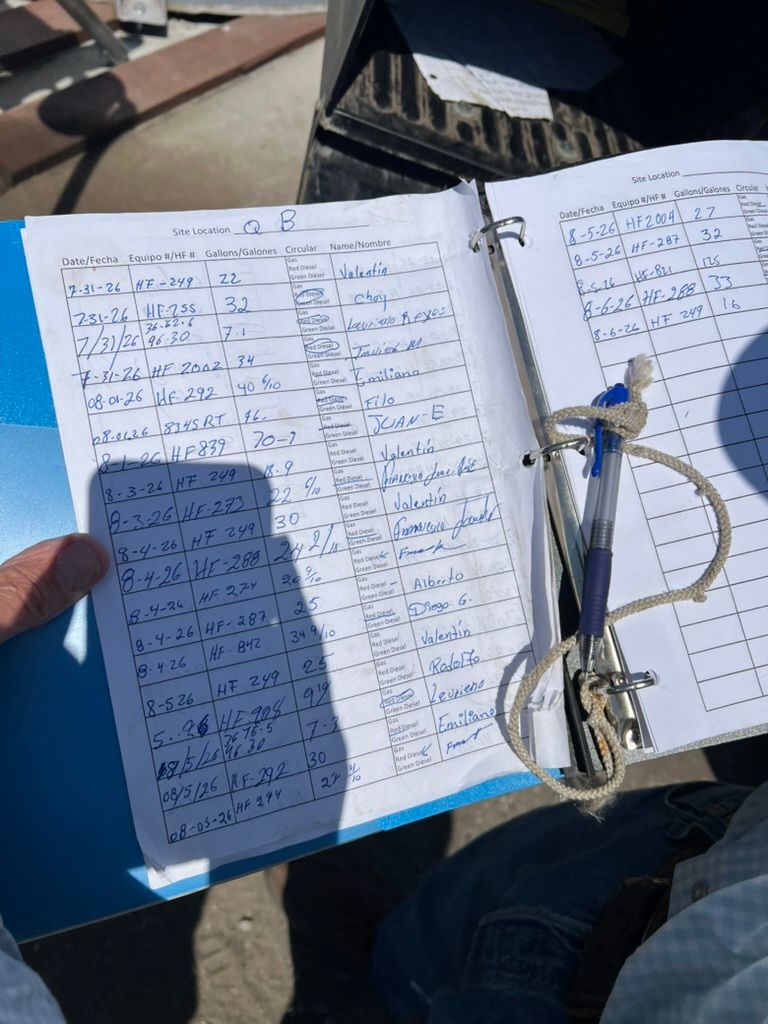 Site Location Q B
Date/Fecha Equipo #/HF # Gallons/Galones Circular Name/Nombre
7-31-26 HF-249 22 Gas Red Diesel Green Diesel Valentin
7-31-26 HF255 32 Gas Red Diesel Green Diesel Choy
7/31/26 9630 7.1 Gas Red Diesel Green Diesel Laureano Reyes
7-31-26 HF 2002 34 Gas Red Diesel Green Diesel
08-01-26 HF 292 40 6/10 Gas Red Diesel Green Diesel Emiliano
08-01-26 834SRT 16. Gas Red Diesel Green Diesel Filo
8-1-26 HF839 70-7 Gas Red Diesel Green Diesel JUAN-E
8-3-26 HF 249 18.9 Gas Red Diesel Green Diesel Valentín
8-3-26 HF-273 22 Gas Red Diesel Green Diesel
8-4-26 HF 249 30 Gas Red Diesel Green Diesel Valentín
8-4-26 HF-288 Gas Red Diesel Green Diesel
8-4-26 HF 274 20 9/10 Gas Red Diesel Green Diesel
8-4-26 HF-287 25 Gas Red Diesel Green Diesel Alberto
8-4-26 HF-842 34 9/10 Gas Red Diesel Green Diesel Diego G.
8-526 HF 249 25 Gas Red Diesel Green Diesel Valentín
HF Gas Red Diesel Green Diesel Rodolfo
9630 7-3 Gas Red Diesel Green Diesel Laureano
08/5/26 HF-292 30 Gas Red Diesel Green Diesel Emiliano
08-05-26 HF 294 Gas Red Diesel Green Diesel
Site Location
Date/Fecha Equipo #/HF # Gallons/Galones Circular
8-5-26 HF2004 27 Gas Red Diesel Green Diesel
8-5-26 HF-287 32 Gas Red Diesel Green Diesel
8-5-26 Gas Red Diesel Green Diesel
8-6-26 HF-288 33 Gas Red Diesel Green Diesel
8-6-26 HF 249 16 Gas Red Diesel Green Diesel